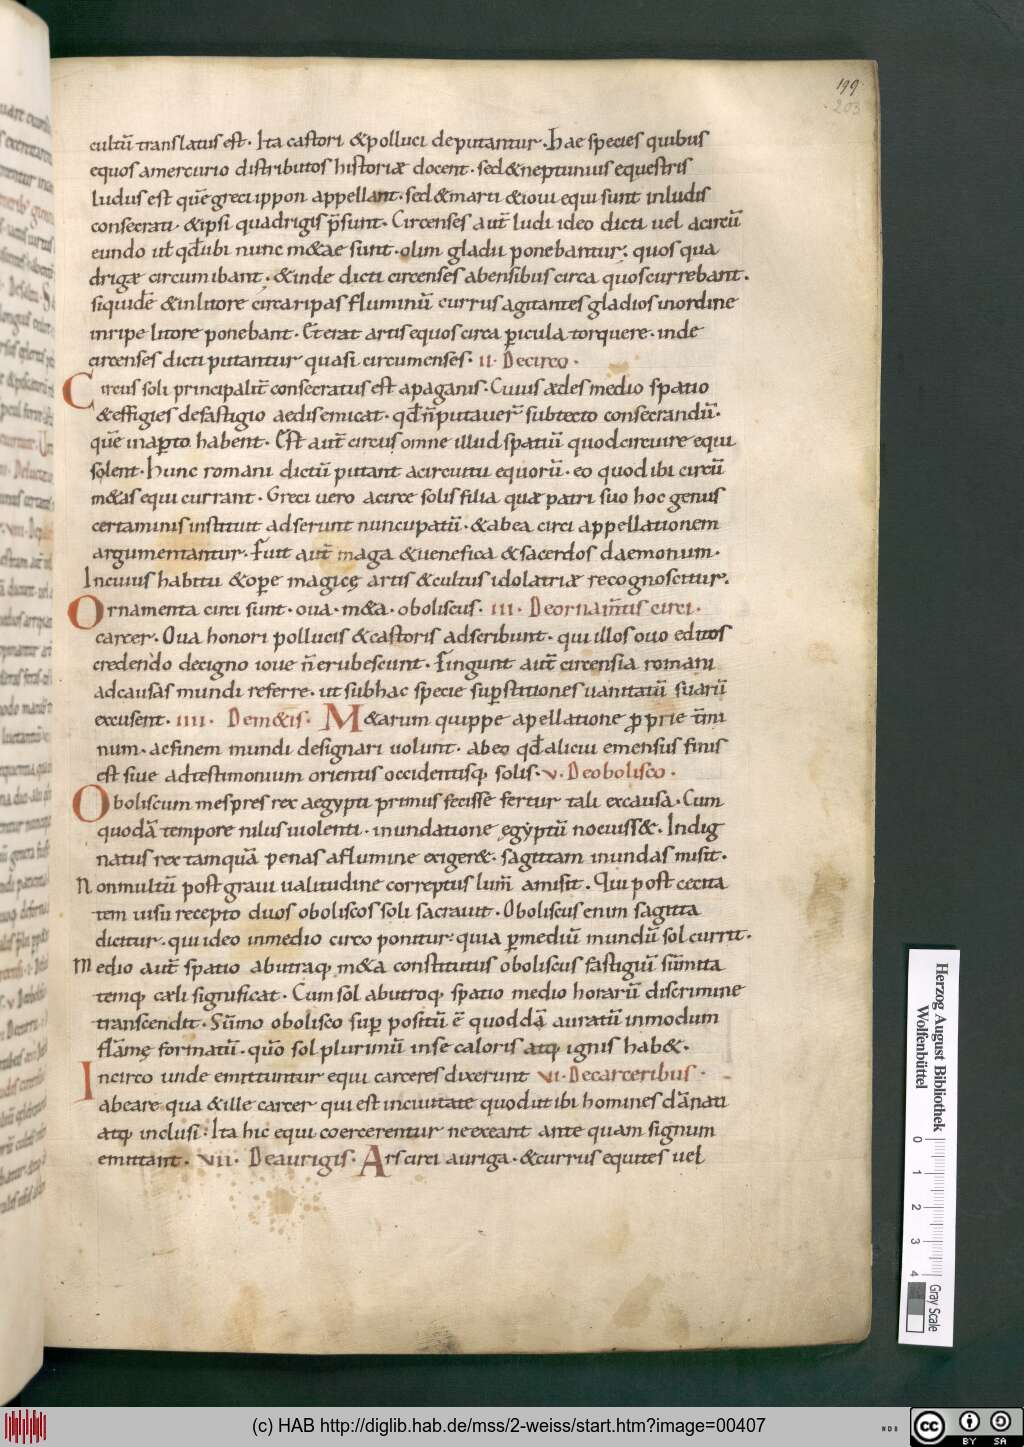 199
203
cultū translatus est. Ita castori &polluci deputantur. Hae species quibus
equos amercurio distributos historiæ docent. sed&neptunius equestris
ludus est quē greci ippon appellant. sed&marti &ioui equi sunt inludis
consecrati. &ipsi quadrigis p̄sunt. Circenses aut̄ ludi ideo dicti uel acircū
eundo ul̄ qd̄ ubi nunc m&ae sunt. olim gladii ponebantur; quos qua
drigæ circumibant. &inde dicti circenses abensibus circa quos currebant.
siquidē &inlitore circa ripas fluminū currus agitantes gladios inordine
inripe litore ponebant. Et erat artis equos circa ꝑicula torquere. inde
circenses dicti putantur quasi circumenses. ii. De circo.
Circus soli principalit̄ consecratus est a paganis. Cuius ædes medio spatio
&effigies defastigio aedis emicat. qd̄ n̄ putauer̄ subtecto consecrandū.
quē inaꝑto habent. Est aut̄ circus omne illud spatiū quod circuire equi
solent. Hunc romani dictū putant acircuitu equorū. eo quod ibi circū
m&as equi currant. Greci uero acirce solis filia quæ patri suo hoc genus
certaminis instituit adserunt nuncupatū. &abea circi appellationem
argumentantur. Fuit aut̄ maga &uenefica &sacerdos daemonum.
Incuius habitu &oꝑe magicę artis &cultus idolatriæ recognoscitur.
Ornamenta circi sunt. oua. m&a. oboliscus. iii. De ornam̄tis circi.
carcer. Oua honori pollucis &castoris adscribunt. qui illos ouo editos
credendo decigno ioue n̄ erubescunt. Fingunt aut̄ circensia romani
adcausas mundi referre. ut subhac specie suꝑstitiones uanitatū suarū
excusent. iiii. De m&is. M&arum quippe apellatione ꝓprie t̄mi
num. acfinem mundi designari uolunt. abeo qd̄ alicui emensus finis
est siue adtestimonium orientis occidentisq; solis. v. De obolisco.
Oboliscum mespres rex aegypti primus fecisse fertur tali excausa. Cum
quodā tempore nilus uiolenti. inundatione ęgyptū nocuiss&. Indig
natus rex tamquā penas aflumine exiger&. sagittam inundas misit.
Nonmultū post graui ualitudine correptus lum̄ amisit. Qui post cecita
tem uisu recepto duos oboliscos soli sacrauit. Oboliscus enim sagitta
dicitur. qui ideo inmedio circo ponitur. quia ꝑmediū mundū sol currit.
Medio aut̄ spatio abutraq; m&a constitutus oboliscus fastigiū sūmita
temq; cæli significat. Cum sol abutroq; spatio medio horarū discrimine
transcendit. Sūmo obolisco suꝑ positū ē quoddā auratū inmodum
flāmę formatū. quō sol plurimū inse caloris atq; ignis hab&.
Incirco unde emittuntur equi carceres dixerunt vi. De carceribus.
abeare qua &ille carcer qui est inciuitate quod ut ibi homines dānati
atq; inclusi: Ita hic equi coercerentur ne exeant ante quam signum
emittant. vii. De aurigis. Ars circi auriga. &currus equites uel
Herzog August Bibliothek
Wolfenbüttel
0 1 2 3 4
Gray Scale
(c) HAB http://diglib.hab.de/mss/2-weiss/start.htm?image=00407
cc BY SA